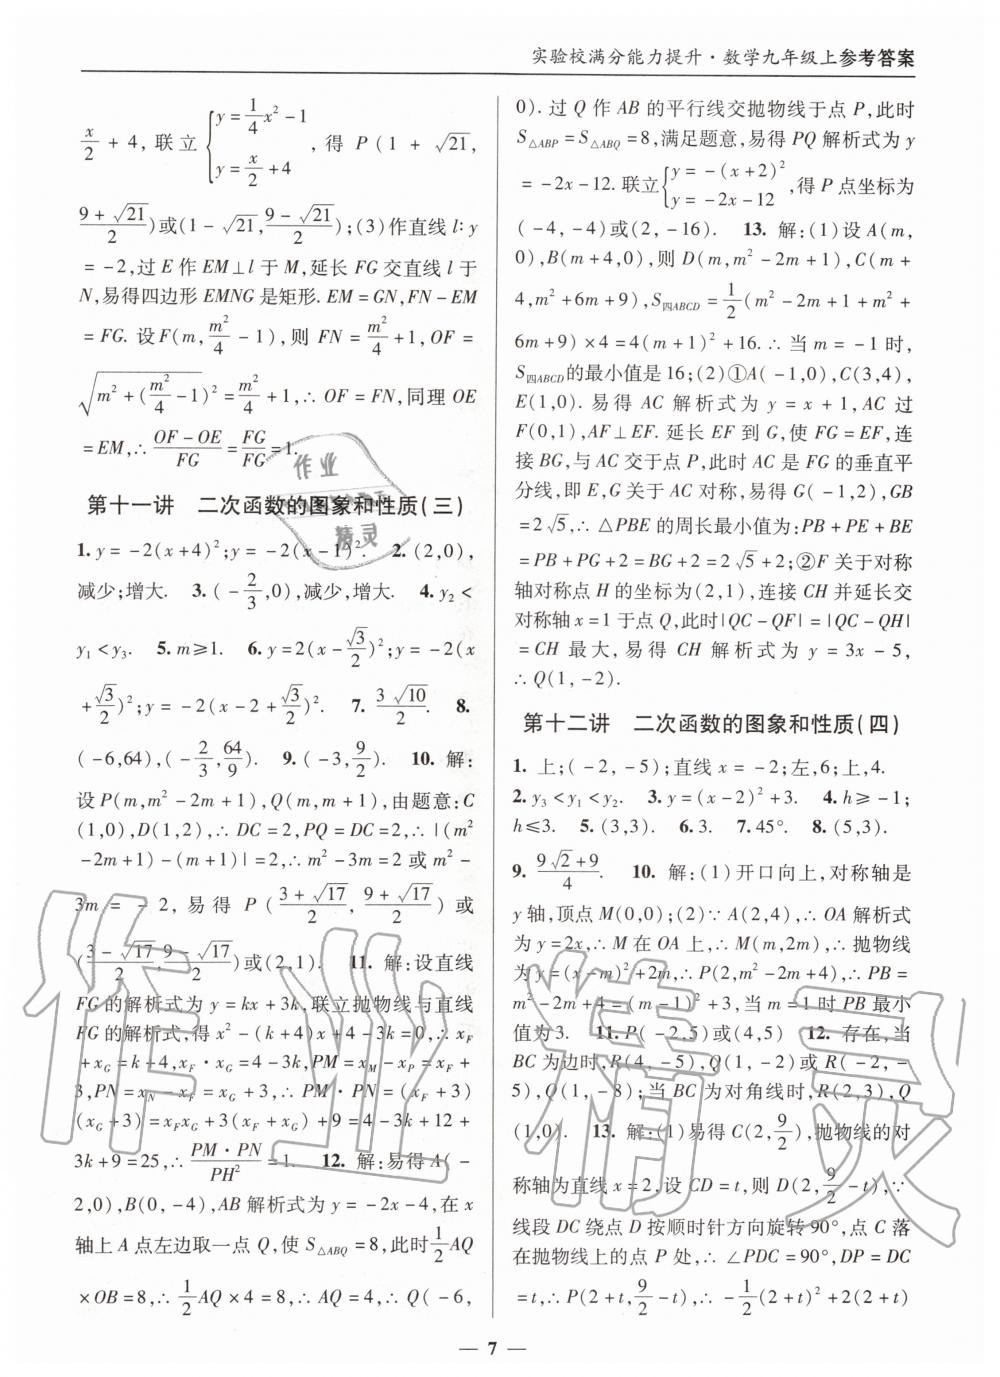 实验校满分能力提升·数学九年级上参考答案
x/2 + 4, 联立 { y = 1/4 x² - 1 ; y = x/2 + 4 , 得 P(1 + √21,
(9 + √21)/2)或(1 - √21, (9 - √21)/2);(3)作直线 l: y
= -2,过 E 作 EM⊥l 于 M,延长 FG 交直线 l 于
N,易得四边形 EMNG 是矩形. EM = GN, FN - EM
= FG. 设 F(m, m²/4 - 1), 则 FN = m²/4 + 1, OF =
√(m² + (m²/4 - 1)²) = m²/4 + 1, ∴ OF = FN, 同理 OE
= EM, ∴ (OF - OE)/FG = FG/FG = 1.
第十一讲 二次函数的图象和性质(三)
1. y = -2(x+4)²; y = -2(x-1)². 2. (2,0),
减少;增大. 3. (-2/3, 0),减少,增大. 4. y₂ <
y₁ < y₃. 5. m≥1. 6. y = 2(x - √3/2)²; y = -2(x
+ √3/2)²; y = -2(x - 2 + √3/2)². 7. 3√10/2. 8.
(-6,64), (-2/3, 64/9). 9. (-3, 9/2). 10. 解:
设 P(m, m² - 2m + 1), Q(m, m + 1), 由题意: C
(1,0), D(1,2), ∴ DC = 2, PQ = DC = 2, ∴ |(m²
- 2m + 1) - (m + 1)| = 2, ∴ m² - 3m = 2 或 m² -
3m = - 2, 易得 P((3 + √17)/2, (9 + √17)/2) 或
((3 - √17)/2, (9 - √17)/2)或(2,1). 11. 解:设直线
FG 的解析式为 y = kx + 3k, 联立抛物线与直线
FG 的解析式,得 x² - (k+4)x + 4 - 3k = 0, ∴ x_F
+ x_G = k + 4, x_F · x_G = 4 - 3k, PM = x_M - x_P = x_F +
3, PN = x_N - x_F = x_G + 3, ∴ PM · PN = (x_F + 3)
(x_G + 3) = x_F x_G + 3(x_F + x_G) + 9 = 4 - 3k + 12 +
3k + 9 = 25, ∴ (PM · PN)/PH² = 1. 12. 解:易得 A(-
2,0), B(0, -4), AB 解析式为 y = -2x - 4, 在 x
轴上 A 点左边取一点 Q, 使 S△ABQ = 8, 此时 1/2 AQ
× OB = 8, ∴ 1/2 AQ × 4 = 8, ∴ AQ = 4, ∴ Q(-6,
0). 过 Q 作 AB 的平行线交抛物线于点 P, 此时
S△ABP = S△ABQ = 8, 满足题意, 易得 PQ 解析式为 y
= -2x - 12. 联立 { y = -(x+2)² ; y = -2x - 12 , 得 P 点坐标为
(-4, -4)或(2, -16). 13. 解:(1)设 A(m,
0), B(m+4,0), 则 D(m, m² - 2m + 1), C(m +
4, m² + 6m + 9), S四ABCD = 1/2(m² - 2m + 1 + m² +
6m + 9) × 4 = 4(m + 1)² + 16. ∴ 当 m = -1 时,
S四ABCD的最小值是 16;(2)①A(-1,0), C(3,4),
E(1,0). 易得 AC 解析式为 y = x + 1, AC 过
F(0,1), AF⊥EF. 延长 EF 到 G, 使 FG = EF, 连
接 BG, 与 AC 交于点 P, 此时 AC 是 FG 的垂直平
分线,即 E, G 关于 AC 对称, 易得 G(-1,2), GB
= 2√5, ∴ △PBE 的周长最小值为: PB + PE + BE
= PB + PG + 2 = BG + 2 = 2√5 + 2;②F 关于对称
轴对称点 H 的坐标为(2,1), 连接 CH 并延长交
对称轴 x = 1 于点 Q, 此时 |QC - QF| = |QC - QH|
= CH 最大, 易得 CH 解析式为 y = 3x - 5,
∴ Q(1, -2).
第十二讲 二次函数的图象和性质(四)
1. 上;(-2, -5);直线 x = -2;左,6;上,4.
2. y₃ < y₁ < y₂. 3. y = (x-2)² + 3. 4. h≥-1;
h≤3. 5. (3,3). 6. 3. 7. 45°. 8. (5,3).
9. (9√2 + 9)/4. 10. 解:(1)开口向上,对称轴是
y 轴,顶点 M(0,0);(2)∵ A(2,4), ∴ OA 解析式
为 y = 2x, ∴ M 在 OA 上, ∴ M(m,2m), ∴ 抛物线
为 y = (x-m)² + 2m, ∴ P(2, m² - 2m + 4), ∴ PB =
m² - 2m + 4 = (m-1)² + 3, 当 m = 1 时 PB 最小
值为 3. 11. P(-2,5)或(4,5) 12. 存在,当
BC 为边时, R(4, -5), Q(1, -2)或 R(-2, -
5), Q(1, -8);当 BC 为对角线时, R(2,3), Q
(1,0). 13. 解:(1)易得 C(2, 9/2), 抛物线的对
称轴为直线 x = 2, 设 CD = t, 则 D(2, 9/2 - t), ∵
线段 DC 绕点 D 按顺时针方向旋转 90°, 点 C 落
在抛物线上的点 P 处, ∴ ∠PDC = 90°, DP = DC
= t, ∴ P(2 + t, 9/2 - t), ∴ -1/2(2+t)² + 2(2+t)
— 7 —
作业
精灵
作业精灵